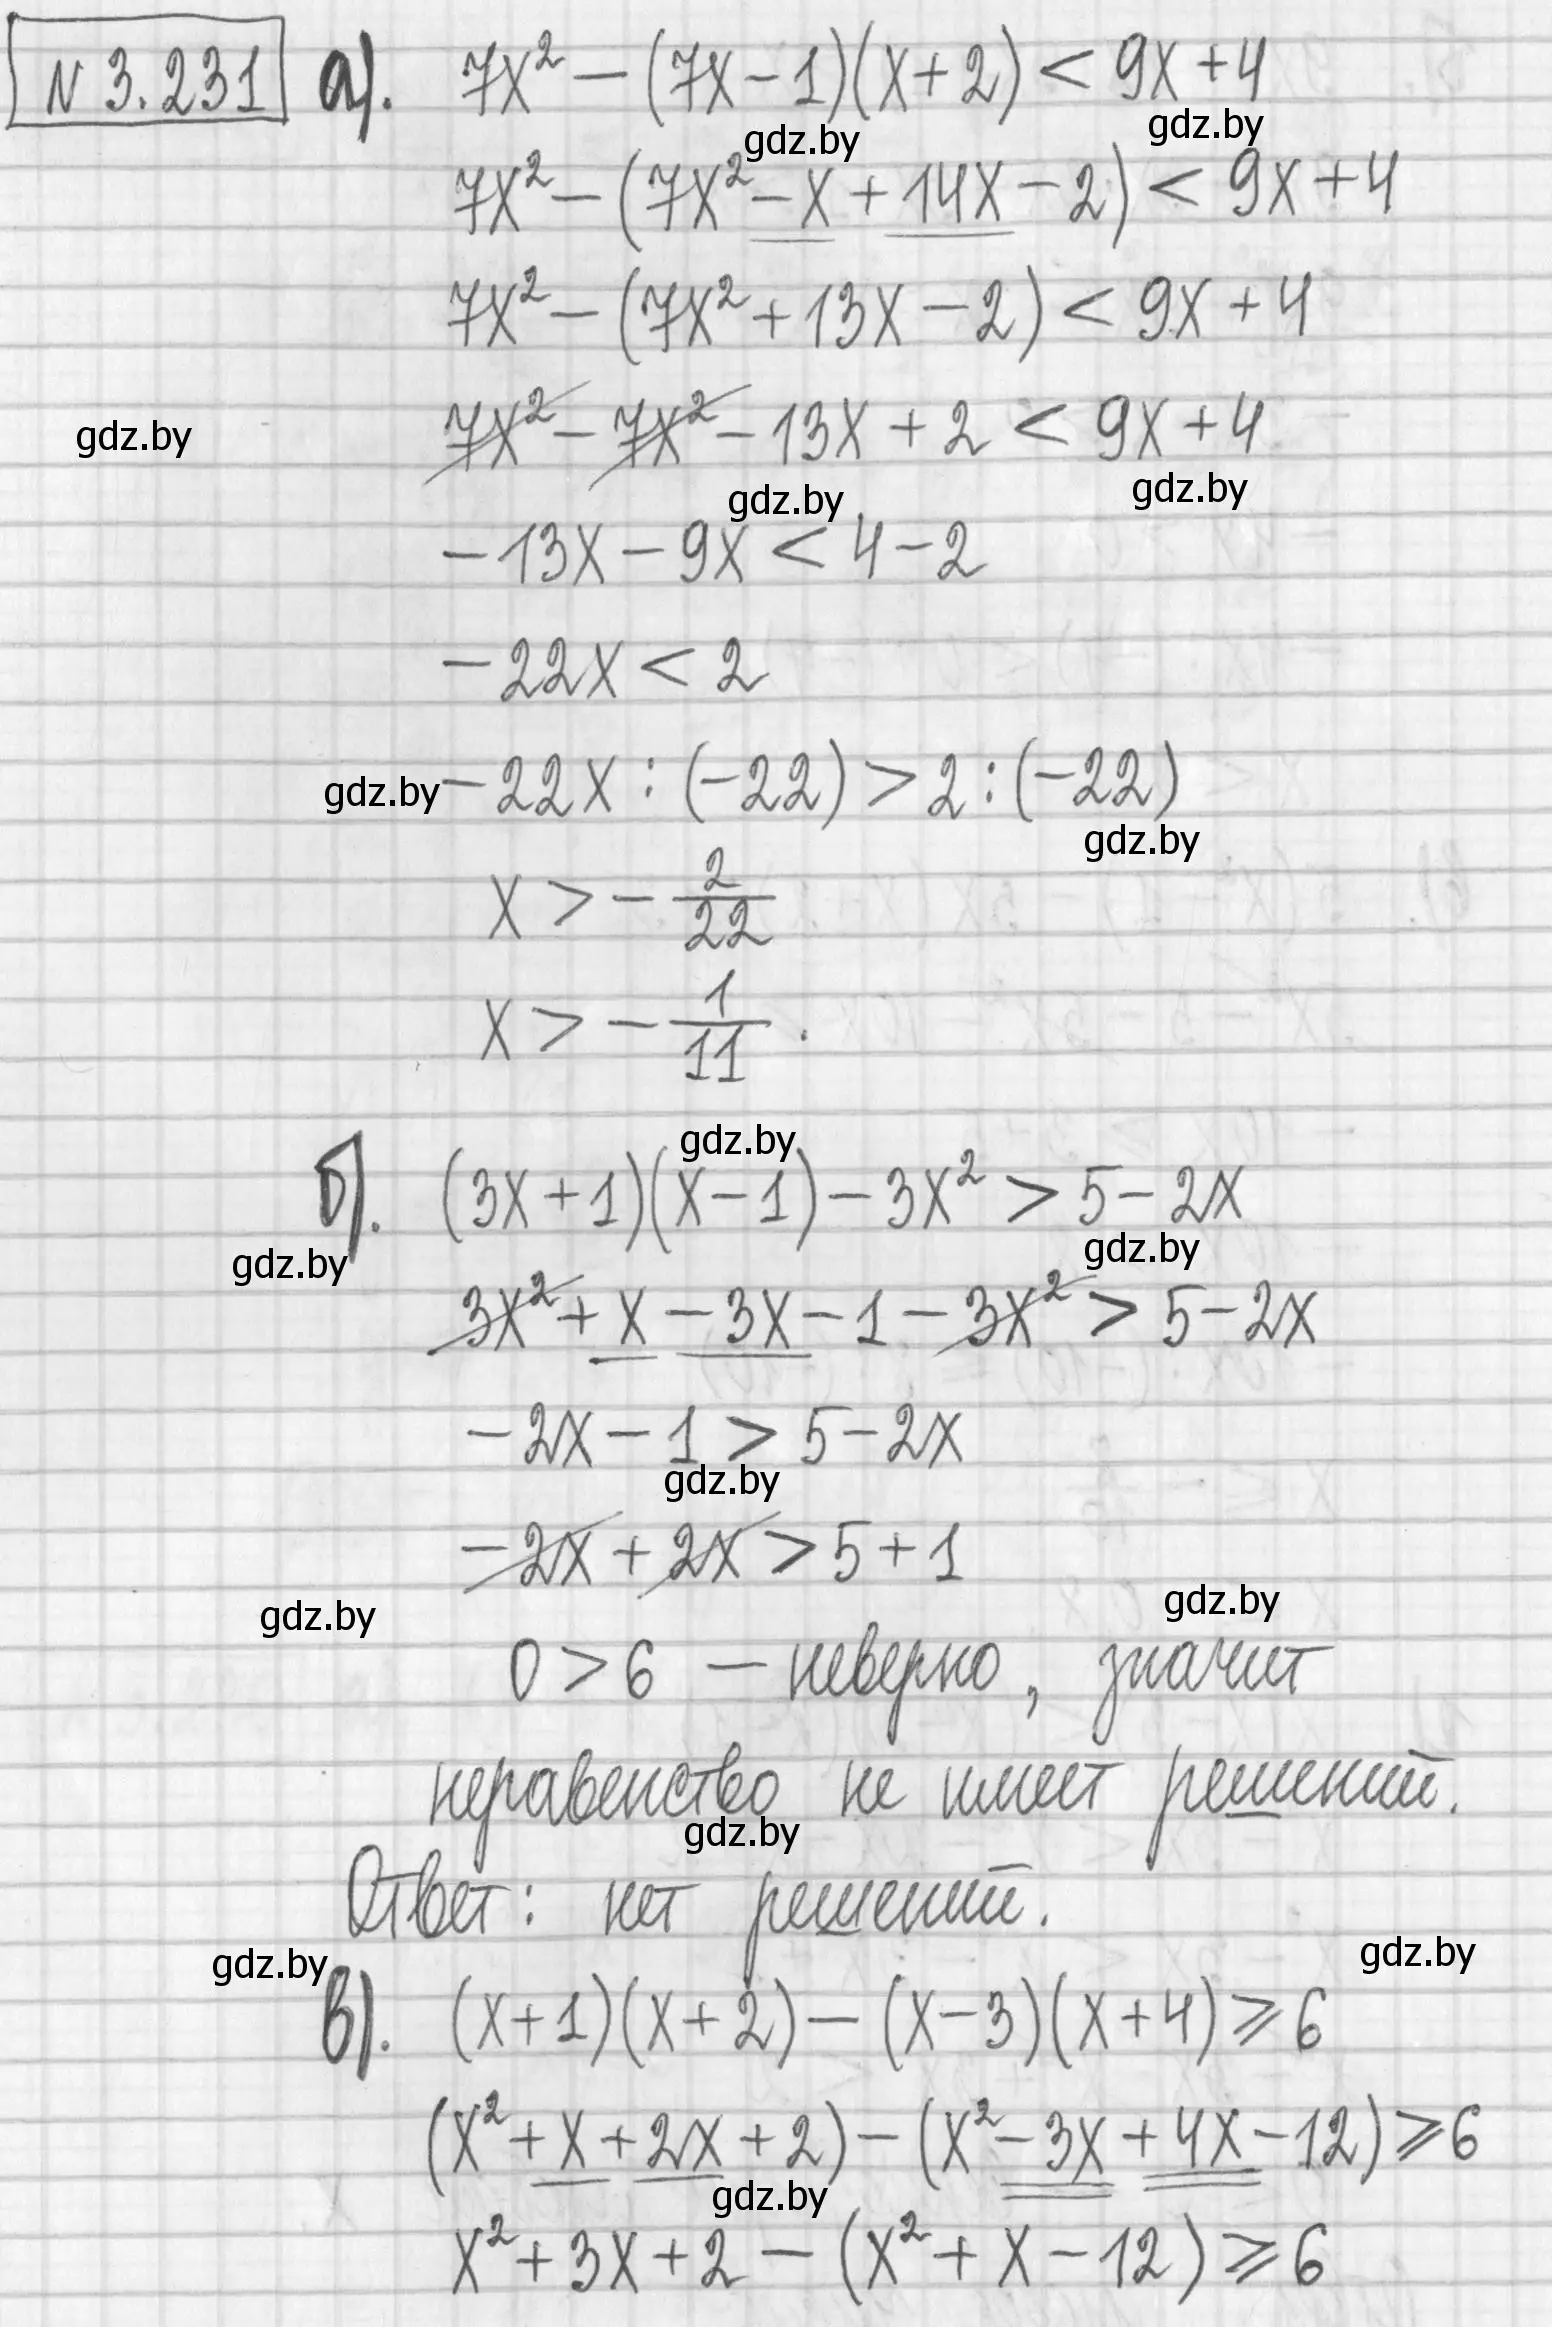 N 3.231 а). 7x² − (7x − 1)(x + 2) < 9x + 4
gdz.by gdz.by
7x² − (7x² − x + 14x − 2) < 9x + 4
7x² − (7x² + 13x − 2) < 9x + 4
gdz.by 7x² − 7x² − 13x + 2 < 9x + 4
gdz.by gdz.by
−13x − 9x < 4 − 2
−22x < 2
gdz.by −22x : (−22) > 2 : (−22)
gdz.by
x > − 2/22
x > − 1/11 .
gdz.by
б). (3x + 1)(x − 1) − 3x² > 5 − 2x
gdz.by gdz.by
3x² + x − 3x − 1 − 3x² > 5 − 2x
−2x − 1 > 5 − 2x
gdz.by
−2x + 2x > 5 + 1
gdz.by gdz.by
0 > 6 — неверно, значит
неравенство не имеет решений.
gdz.by
Ответ: нет решений.
gdz.by gdz.by
в). (x + 1)(x + 2) − (x − 3)(x + 4) ⩾ 6
(x² + x + 2x + 2) − (x² − 3x + 4x − 12) ⩾ 6
gdz.by
x² + 3x + 2 − (x² + x − 12) ⩾ 6